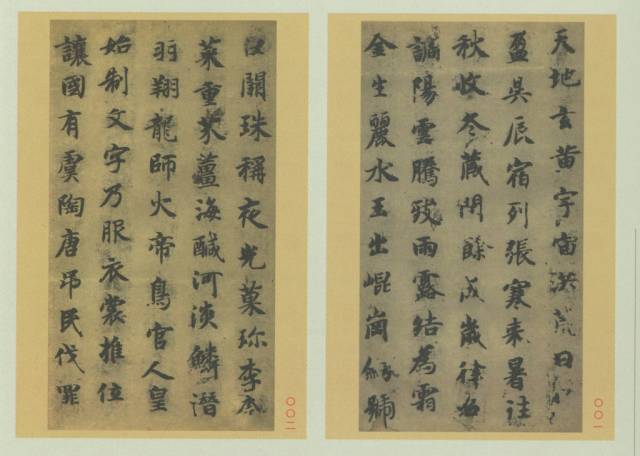 天地玄黄宇宙洪荒日月
盈昃辰宿列張寒来暑往
秋收冬蔵閏餘成歲律召
調陽雲騰致雨露結為霜
金生麗水玉出崐崗劒號
〇〇一
巨闕珠稱夜光菓珍李柰
菜重芥薑海鹹河淡鱗潛
羽翔龍師火帝鳥官人皇
始制文字乃服衣裳推位
讓國有虞陶唐吊民伐罪
〇〇二